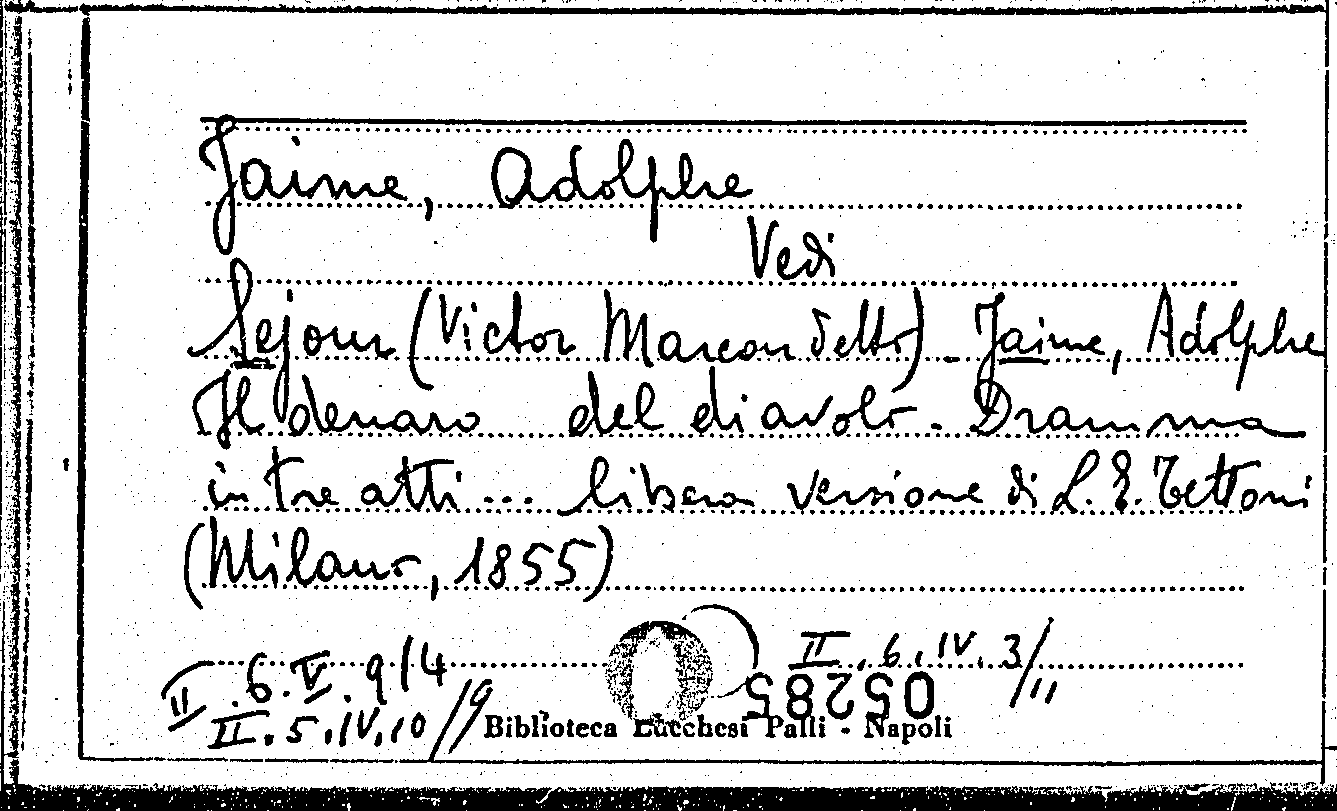 Jaime, Adolphe
Vedi
Sejour (Victor Marcon detto) - Jaime, Adolphe
Il denaro del diavolo - Dramma
in tre atti ... libera versione di L. E. Tettoni
(Milano, 1855)
II.6.IV.3/11
II.6.V.9/4
II.5.IV.10/9
05285
Biblioteca Lucchesi Palli - Napoli